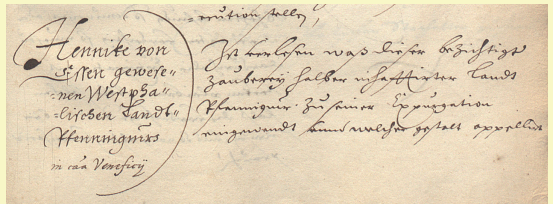 =cution stellen,
Hennike von
Essen gewese=
nen Westpha=
=lischen Landt=
Pfenningmrs
in caa Veneficij
Ist verlesen waß dieser bezichtigt
Zauberey halber inhafftirter Landt
Pfenningmr: zu seiner Expurgation
eingewandt unnd welcher gestalt appellirt